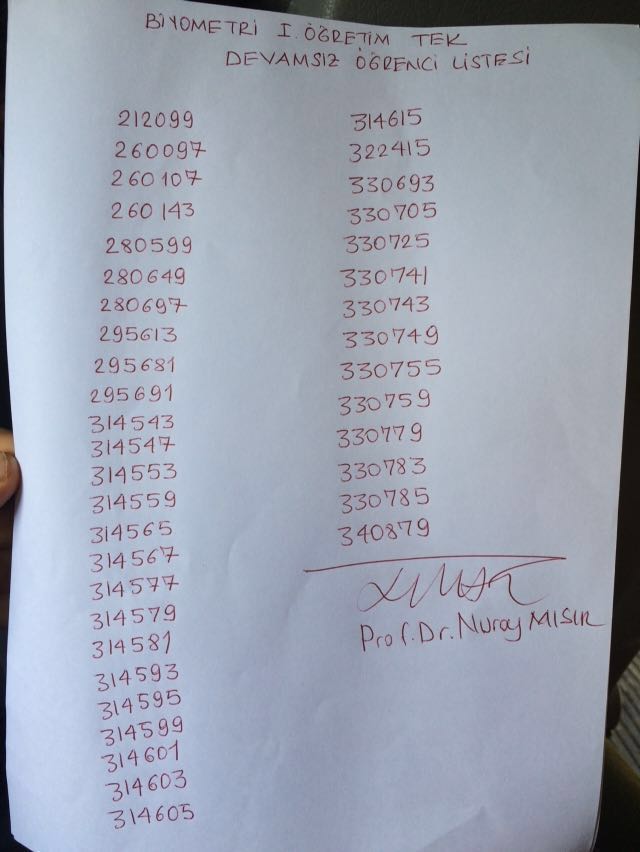 BİYOMETRİ I. ÖĞRETİM TEK
DEVAMSIZ ÖĞRENCİ LİSTESİ
212099
260097
260107
260143
280599
280649
280697
295613
295681
295691
314543
314547
314553
314559
314565
314567
314577
314579
314581
314593
314595
314599
314601
314603
314605
314615
322415
330693
330705
330725
330741
330743
330749
330755
330759
330779
330783
330785
340879
Prof.Dr.Nuray MISIR